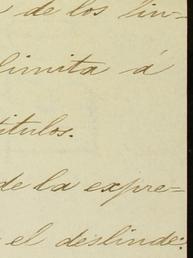 de los lin-
limita á
titulos.
de la expre-
el deslinde: